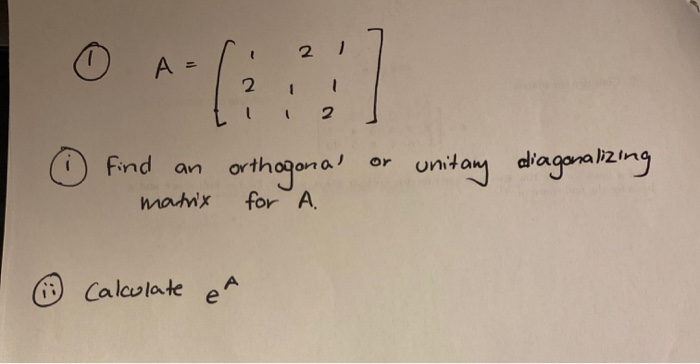 ① A = [ 1 2 1
2 1 1
1 1 2 ]
ⓘ Find an orthogonal or unitary diagonalizing
matrix for A.
ⓘⓘ Calculate e^A